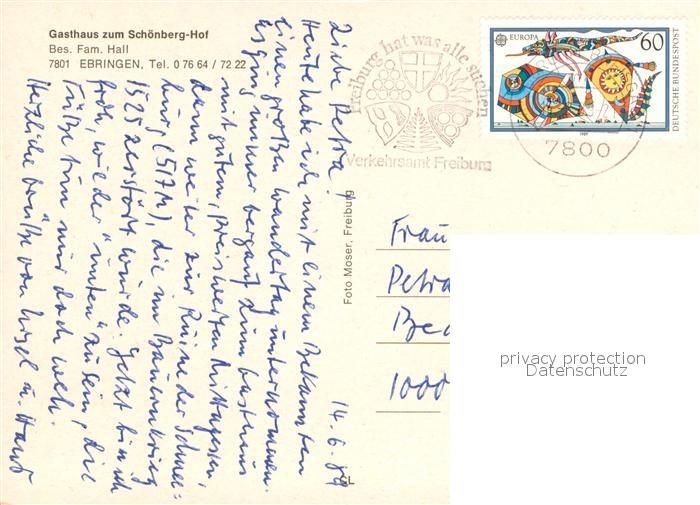 Gasthaus zum Schönberg-Hof
Bes. Fam. Hall
7801 EBRINGEN, Tel. 0 76 64 / 72 22
Freiburg hat was alle suchen
Verkehrsamt Freiburg
EUROPA
60
DEUTSCHE BUNDESPOST
1989
7800
14.6.89
Liebe Petra!
Heute habe ich mit einem Bekannten
einen großen Wandertag unternommen.
Es ging immer bergauf zum Gasthaus
mit gutem, preiswerten Mittagessen,
dann weiter zur Ruine der Schnee=
burg (517 M), die im Bauernkrieg
1525 zerstört wurde. Jetzt bin ich
froh, wieder "unten" zu sein, die
Füße tun mir doch weh.
Herzliche Grüße von Lisel u. Hans
Foto Moser, Freiburg
Frau
Petra
1000
privacy protection
Datenschutz